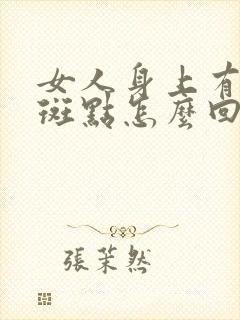 女人身上有
斑點怎麼回
張茉然